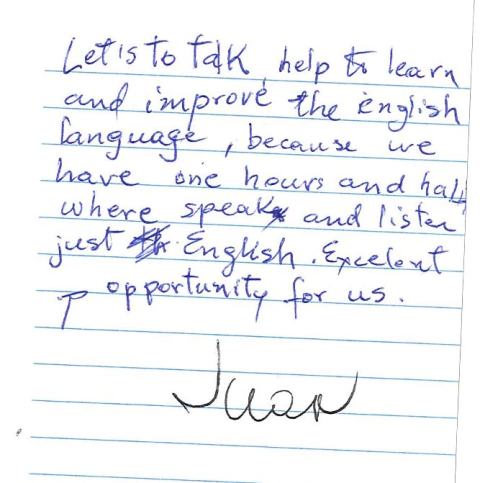 Let's to talk help to learn
and improve the english
language, because we
have one hours and half
where speak and listen
just English. Excelent
opportunity for us.
Juan